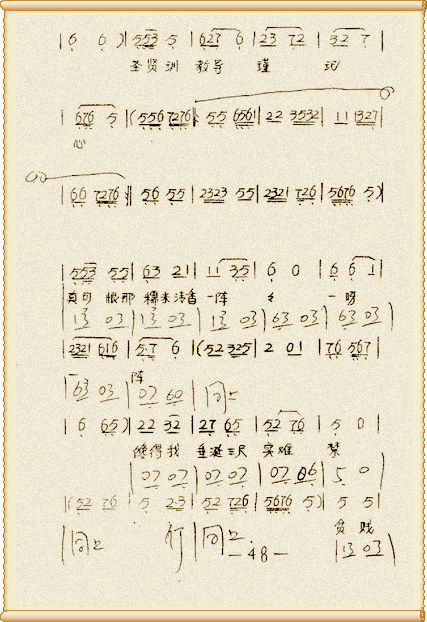 | 6 6 ) | 553 5 | 627 6 | 23 72 | 32 7 |
圣贤训 教导 谨 记
| 676 5 | (556 7276 | 55 6561 | 22 3532 | 11 1327 |
心
| 66 7276 | 56 55 | 2323 55 | 2321 726 | 5676 5 ) |
| 553 55 | 63 21 | 11 35 | 6 0 | 6 6 1 |
真可恨那 糯米清香 一阵 一呀
| 13 03 | 13 03 | 13 03 | 63 03 | 63 03 |
| 2321 616 | 5·7 6 | (52 325 | 2 01 | 76 567 |
阵
63 03 | 07 60 | 同上
| 6 65 ) | 22 32 | 27 65 | 52 76 | 5 0 |
馋得我 垂涎三尺 实难 禁
| 07 07 | 07 07 | 07 06 | 5 0
| (52 76 | 5 2·3 | 52 726 | 5676 5 ) | 5 5 |
贫贱
| 同上 行 | 同上 | 13 03 |
—48—